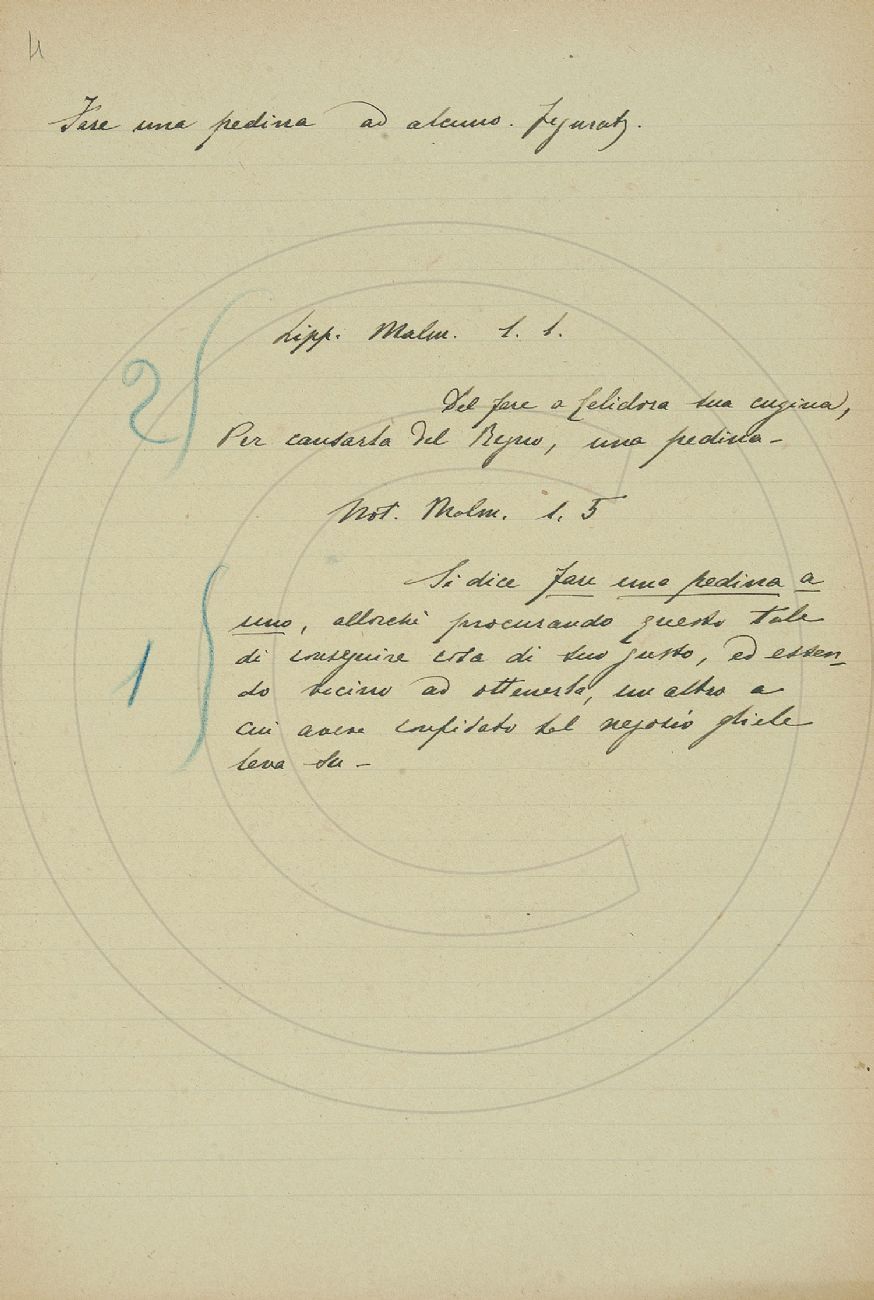 4
Fare una pedina ad alcuno. figurat.
2
Lipp. Malm. 1. 1.
Del fare a Celidora sua cugina,
Per cansarla del Regno, una pedina -
Not. Malm. 1. 5
1
Si dice fare una pedina a
uno, allorchè procurando questo tale
di conseguire cosa di suo gusto, ed essen-
do vicino ad ottenerla, un altro a
cui avere confidato tal negozio gliele
leva su -